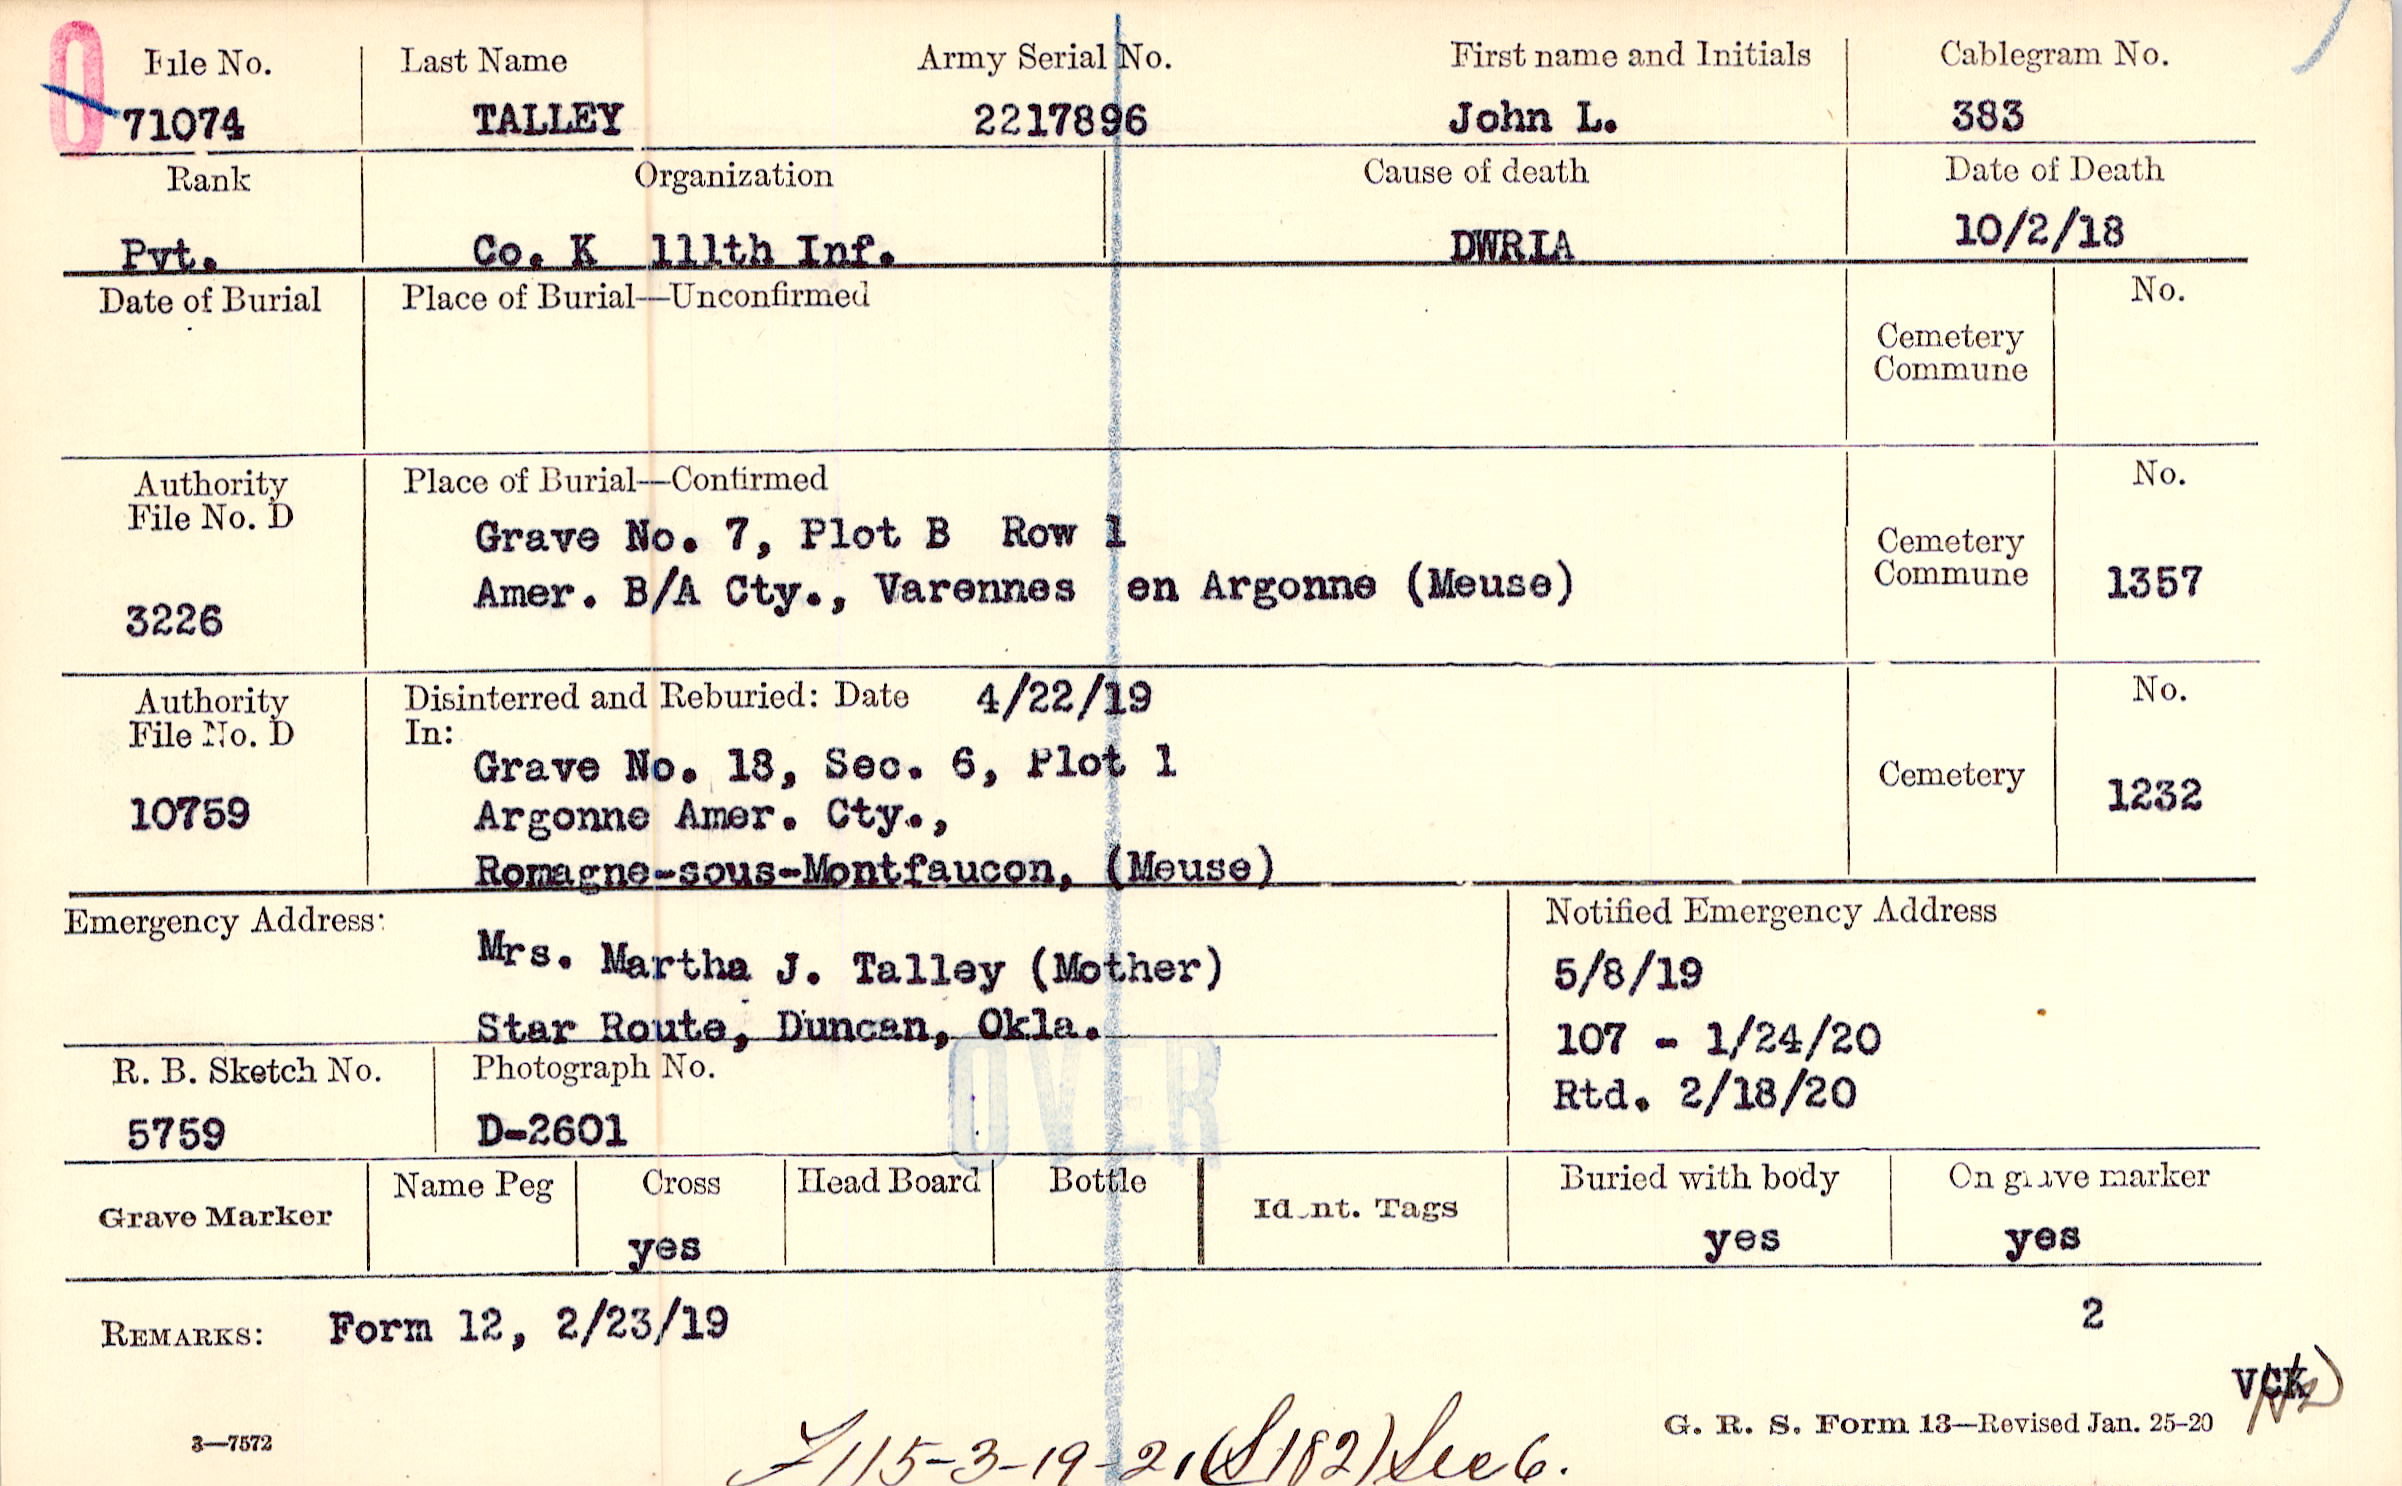 File No. Last Name Army Serial No. First name and Initials Cablegram No.
0
71074 TALLEY 2217896 John L. 383
Rank Organization Cause of death Date of Death
Pvt. Co. K 111th Inf. DWRIA 10/2/18
Date of Burial Place of Burial—Unconfirmed No.
Cemetery
Commune
Authority Place of Burial—Confirmed No.
File No. D
Grave No. 7, Plot B Row 1
Cemetery
Commune
Amer. B/A Cty., Varennes en Argonne (Meuse) 1357
3226
Authority Disinterred and Reburied: Date 4/22/19 No.
File No. D In:
Grave No. 18, Sec. 6, Plot 1
Cemetery
10759 Argonne Amer. Cty., 1232
Romagne-sous-Montfaucon, (Meuse)
Emergency Address: Notified Emergency Address
Mrs. Martha J. Talley (Mother) 5/8/19
Star Route, Duncan, Okla. 107 - 1/24/20
Rtd. 2/18/20
OVER
R. B. Sketch No. Photograph No.
5759 D-2601
Grave Marker Name Peg Cross Head Board Bottle Ident. Tags Buried with body On grave marker
yes yes yes
REMARKS: Form 12, 2/23/19 2
VCK
3—7572 G. R. S. Form 13—Revised Jan. 25-20
115-3-19-21 (S182) Sec 6.